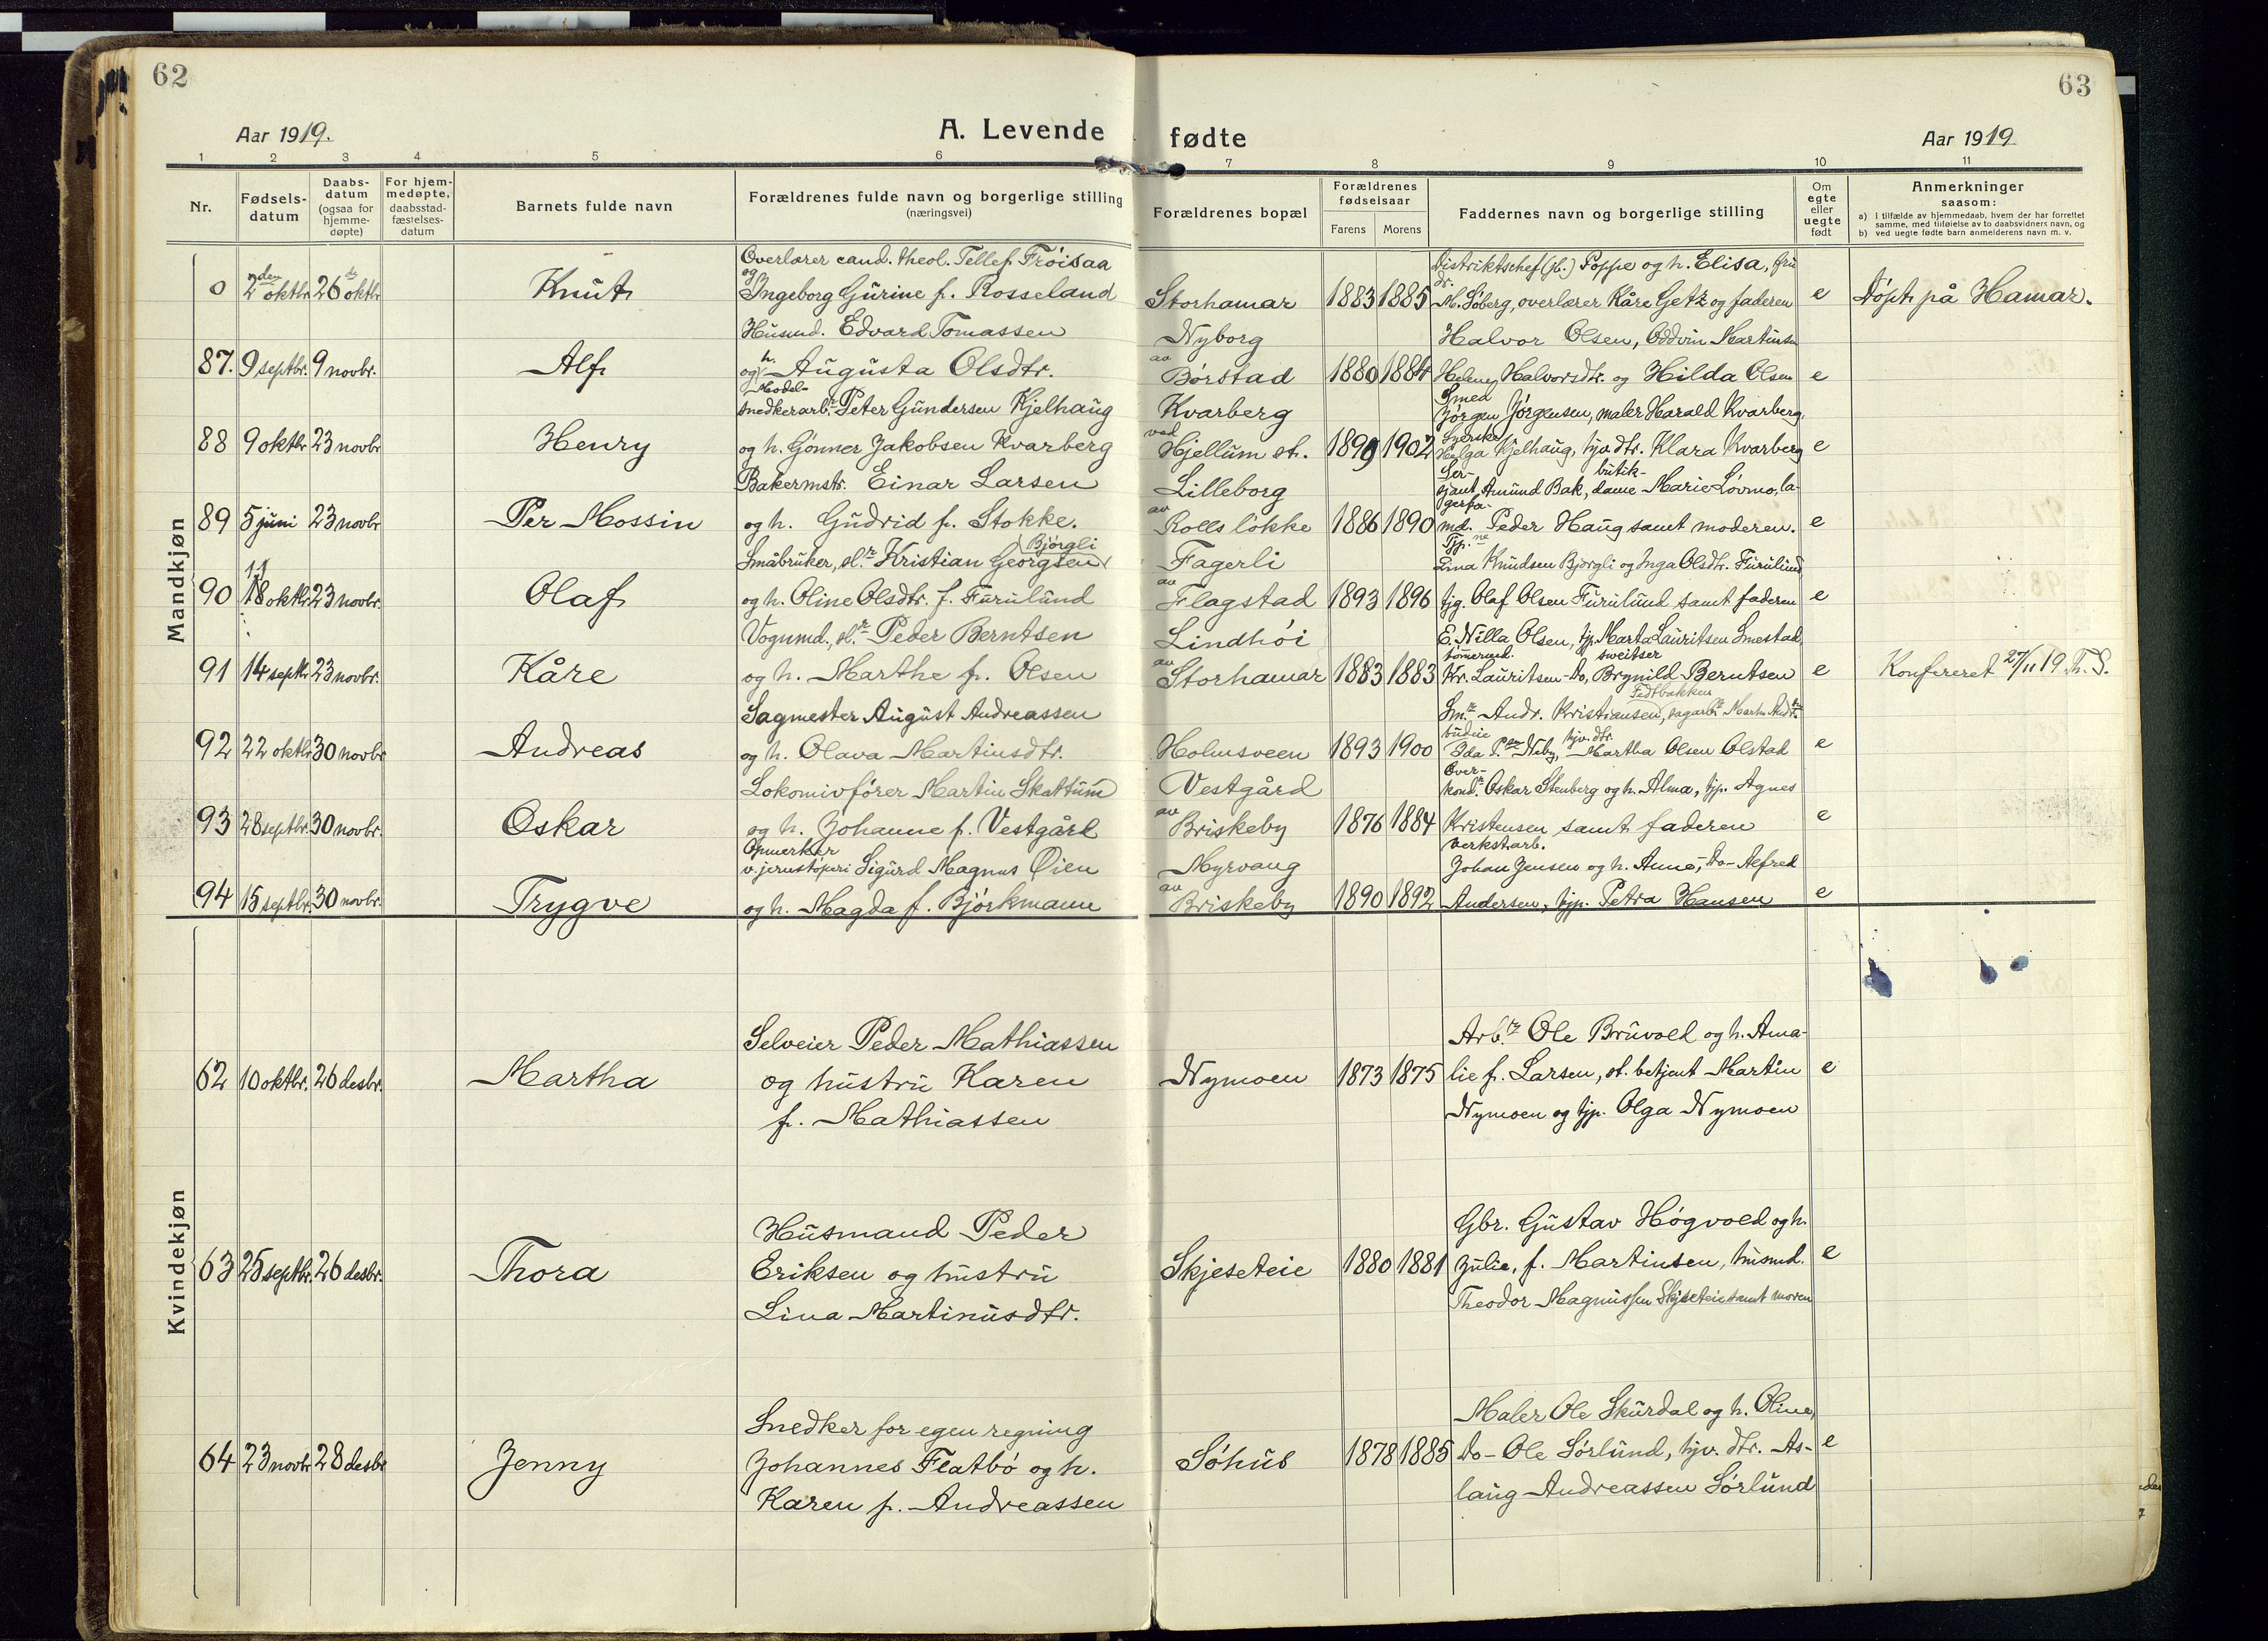 62
63
Aar 1919.
A. Levende fødte
Aar 1919
1 2 3 4 5 6 7 8 9 10 11
Nr.
Fødsels-
datum
Daabs-
datum
(ogsaa for
hjemme-
døpte)
For hjem-
medøpte,
daabsstad-
fæstelses-
datum
Barnets fulde navn
Forældrenes fulde navn og borgerlige stilling
(næringsvei)
Forældrenes bopæl
Forældrenes
fødselsaar
Farens Morens
Faddernes navn og borgerlige stilling
Om
egte
eller
uegte
født
Anmerkninger
saasom:
a) i tilfælde av hjemmedaab, hvem der har forrettet
samme, med tilføielse av to daabsvidners navn, og
b) ved uegte fødte barn anmelderens navn m. v.
Mandkjøn
Overlærer cand. theol. Tellef Fröisaa
Distriktschef Poppe og h. Elisa,
0 2den oktbr 26 oktbr Knut og Ingeborg Gurine f. Rosseland Storhamar 1883 1885 M. Söberg, overlærer Kåre Getz og faderen e Döpt på Hamar.
Husmd. Edvard Tomassen Nyborg Halvor Olsen, Oddvin Martinsen
87. 9 septbr. 9 novbr. Alf og h. Augusta Olsdtr. av Börstad 1880 1884 Helene Halvorsdtr. og Hilda Olsen e
Model-
snedkerarbr. Peter Gundersen Kjelhaug Kvarberg Smed Jörgen Jörgensen, maler Harald Kvarberg,
88 9 oktbr 23 novbr Henry og h. Gönner Jakobsen Kvarberg ved Hjellum st. 1899 1902 Syerske Helga Kjelhaug, hjv. dtr. Klara Kvarberg e
Bakermstr. Einar Larsen Lilleborg Ser-sjant Amund Bak, butik-dame Marie Lövmo, la-
89 5 juni 23 novbr Per Mossin og h. Gudrid f. Stokke. av Rolls lökke 1886 1890 gerfo-md. Peder Haug samt moderen. e
Småbruker, sl.r Kristian Georgsen (Björgli) Fagerli Tjp.ne Lina Knudsen Björgli og Inga Olsdtr. Furulund
90 11 18 oktbr 23 novbr. Olaf og h. Oline Olsdtr. f. Furulund av Flagstad 1893 1896 tjg. Olaf Olsen Furulund samt faderen e
Vognmd., sl.r Peder Berntsen Lindhöi E. Nilla Olsen, tjp. Marta Lauritsen Smestad
91 14 septbr 23 novbr. Kåre og h. Marthe f. Olsen av Storhamar 1883 1883 tömermd. Kr. Lauritsen - do, sweitser Brynild Berntsen e Konfereret 27/11 19 Th. S.
Sagmester August Andreassen Sm.r Andr. Kristiansen Fedtbakken, sagarb.r Marth.
92 22 oktbr 30 novbr Andreas og h. Olava Martinsdtr. Holmsveen 1893 1900 budeie Ida Neby, hjv. dtr. Martha Olsen Olstad e
Lokomivförer Martin Skattum Vestgård Over-kond.r Oskar Stenberg og h. Alma, tjp. Agnes
93 28 septbr. 30 novbr. Oskar og h. Johanne f. Vestgård av Briskeby 1876 1884 Kristensen samt faderen e
Opmerker
v. jernstöperi Sigurd Magnus Öien Myrvang Verkstarb. Johan Jensen og h. Anne, do - Alfred
94 15 septbr. 30 novbr. Trygve og h. Magda f. Björkmann av Briskeby 1890 1892 Andersen, tjp. Petra Hansen e
Kvindekjøn
Selveier Peder Mathiassen Arb.r Ole Bruvold og h. Ama-
62 10 oktbr. 26 desbr. Martha og hustru Karen Nymoen 1873 1875 lie f. Larsen, st. betjent Martin e
f. Mathiassen Nymoen og tjp. Olga Nymoen
Husmand Peder Gbr. Gustav Högvold og h.
63 25 septbr. 26 desbr. Thora Eriksen og hustru Skjeseteie 1880 1881 Julie, f. Martinsen, husmd. e
Lina Martinusdtr. Theodor Magnussen Skjeseteie samt moren
Snedker for egen regning Maler Ole Skurdal og h. Oline,
64 23 novbr 28 desbr Jenny Johannes Flatbö og h. Söhus 1878 1885 do - Ole Sörlund, hjv. dtr. As- e
Karen f. Andreassen laug Andreassen Sörlund